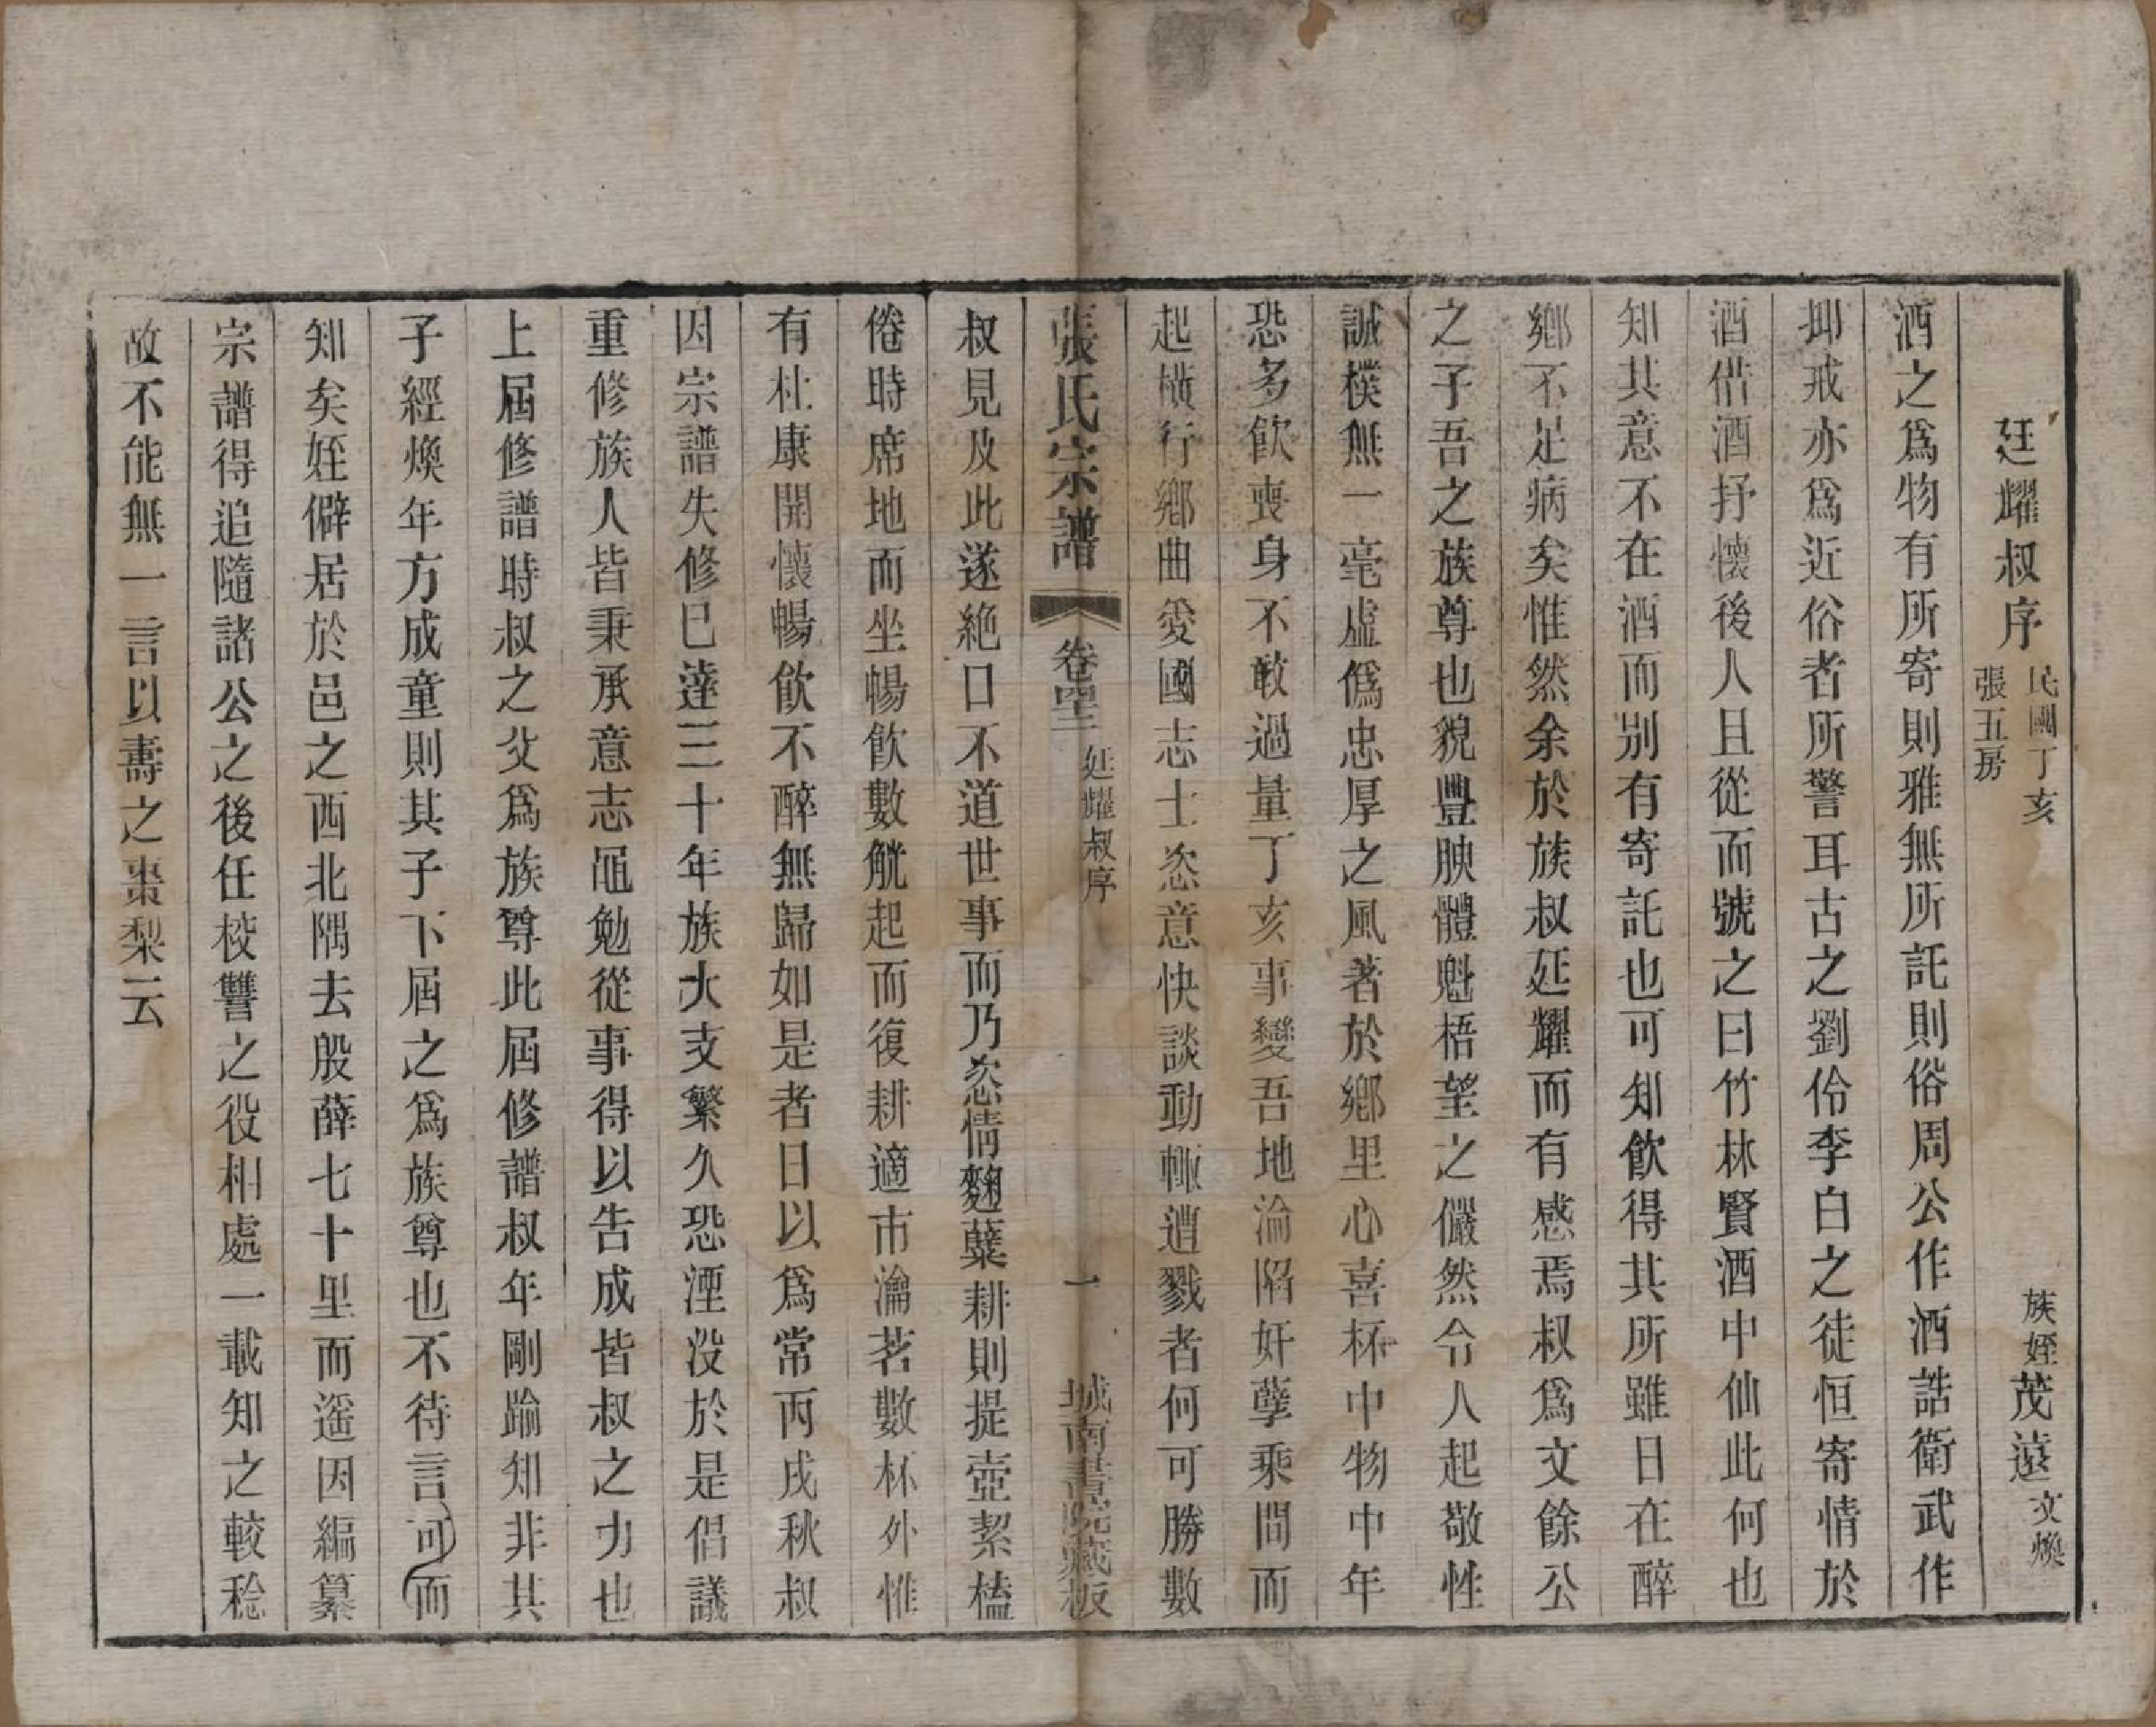 廷耀叔序 民國丁亥 張五房 族姪茂遠文煥
酒之爲物有所寄則雅無所託則俗周公作酒誥衛武作
抑戒亦爲近俗者所警耳古之劉伶李白之徒恒寄情於
酒借酒抒懷後人且從而號之曰竹林賢酒中仙此何也
知其意不在酒而別有寄託也可知飲得其所雖日在醉
鄉不足病矣惟然余於族叔廷耀而有感焉叔爲文餘公
之子吾之族尊也貌豐腴體魁梧望之儼然令人起敬性
誠樸無一毫虛僞忠厚之風著於鄉里心喜杯中物中年
恐多飲喪身不敢過量丁亥事變吾地淪陷奸孽乘間而
起橫行鄉曲愛國志士恣意快談動輒遭戮者何可勝數
張氏宗譜 卷 廷耀叔序 一 城南書院藏板
叔見及此遂絶口不道世事而乃恣情麴蘗耕則提壺絜榼
倦時席地而坐暢飲數觥起而復耕適市瀹茗數杯外惟
有杜康開懷暢飲不醉無歸如是者日以爲常丙戌秋叔
因宗譜失修已達三十年族大支繁久恐湮沒於是倡議
重修族人皆秉承意志黽勉從事得以告成皆叔之力也
上屆修譜時叔之父爲族尊此屆修譜叔年剛踰知非其
子經煥年方成童則其子下屆之爲族尊也不待言可而
知矣姪僻居於邑之西北隅去殷薛七十里而遥因編纂
宗譜得追隨諸公之後任校讐之役相處一載知之較稔
故不能無一言以壽之棗梨云